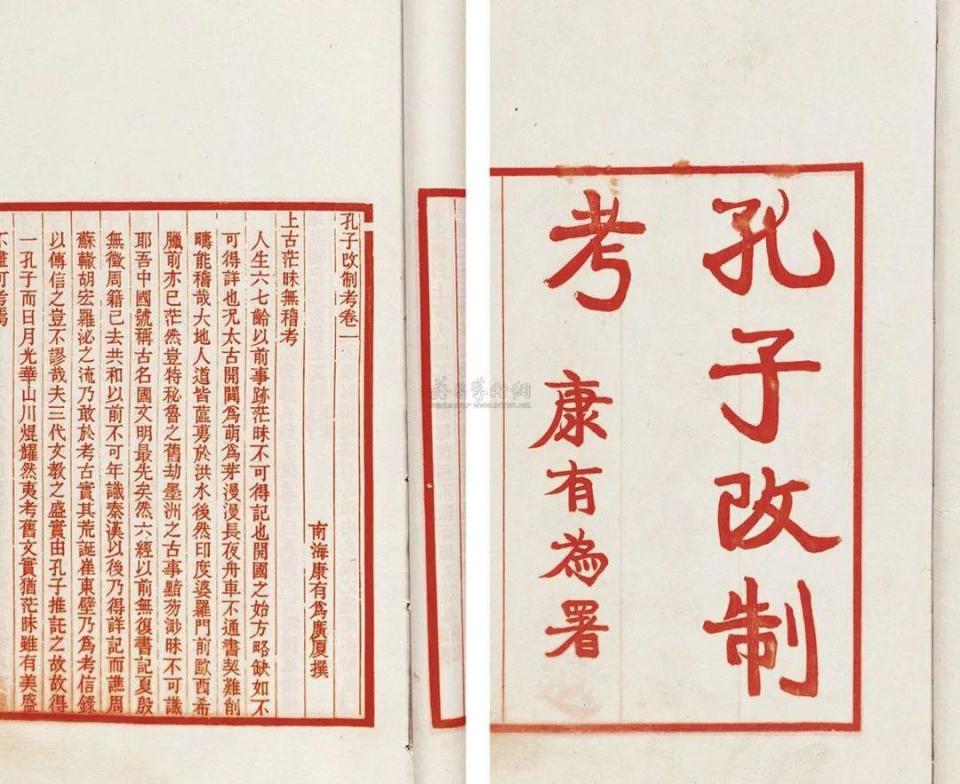 孔子改制
考
康有為署
孔子改制考卷一
南海康有爲廣厦撰
上古茫昧無稽考
人生六七齡以前事跡茫昧不可得記也開國之始方略缺如不
可得詳也况太古開闢爲萌爲芽漫漫長夜舟車不通書契難削
疇能稽哉大地人道皆蓲旉於洪水後然印度婆羅門前歐西希
臘前亦已茫然豈特秘魯之舊劫墨洲之古事黯芴渺昧不可識
耶吾中國號稱古名國文明最先矣然六經以前無復書記夏殷
無徵周籍已去共和以前不可年識秦漢以後乃得詳記而譙周
蘇轍胡宏羅泌之流乃敢於考古實其荒誕崔東壁乃爲考信錄
以傳信之豈不謬哉夫三代文教之盛實由孔子推託之故故得
一孔子而日月光華山川焜耀然夷考舊文實猶茫昧雖有美盛
不盡可考焉